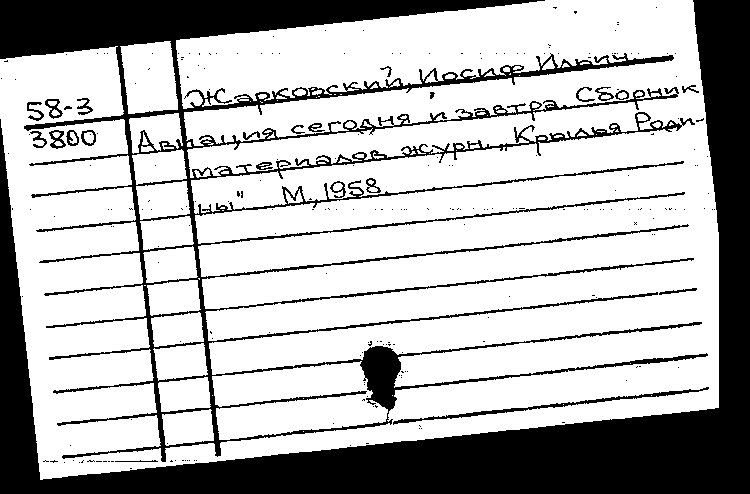 Жарковский, Иосиф Ильич.
58-3
3800
Авиация сегодня и завтра. Сборник
материалов журн. „Крылья Роди-
ны" М., 1958.